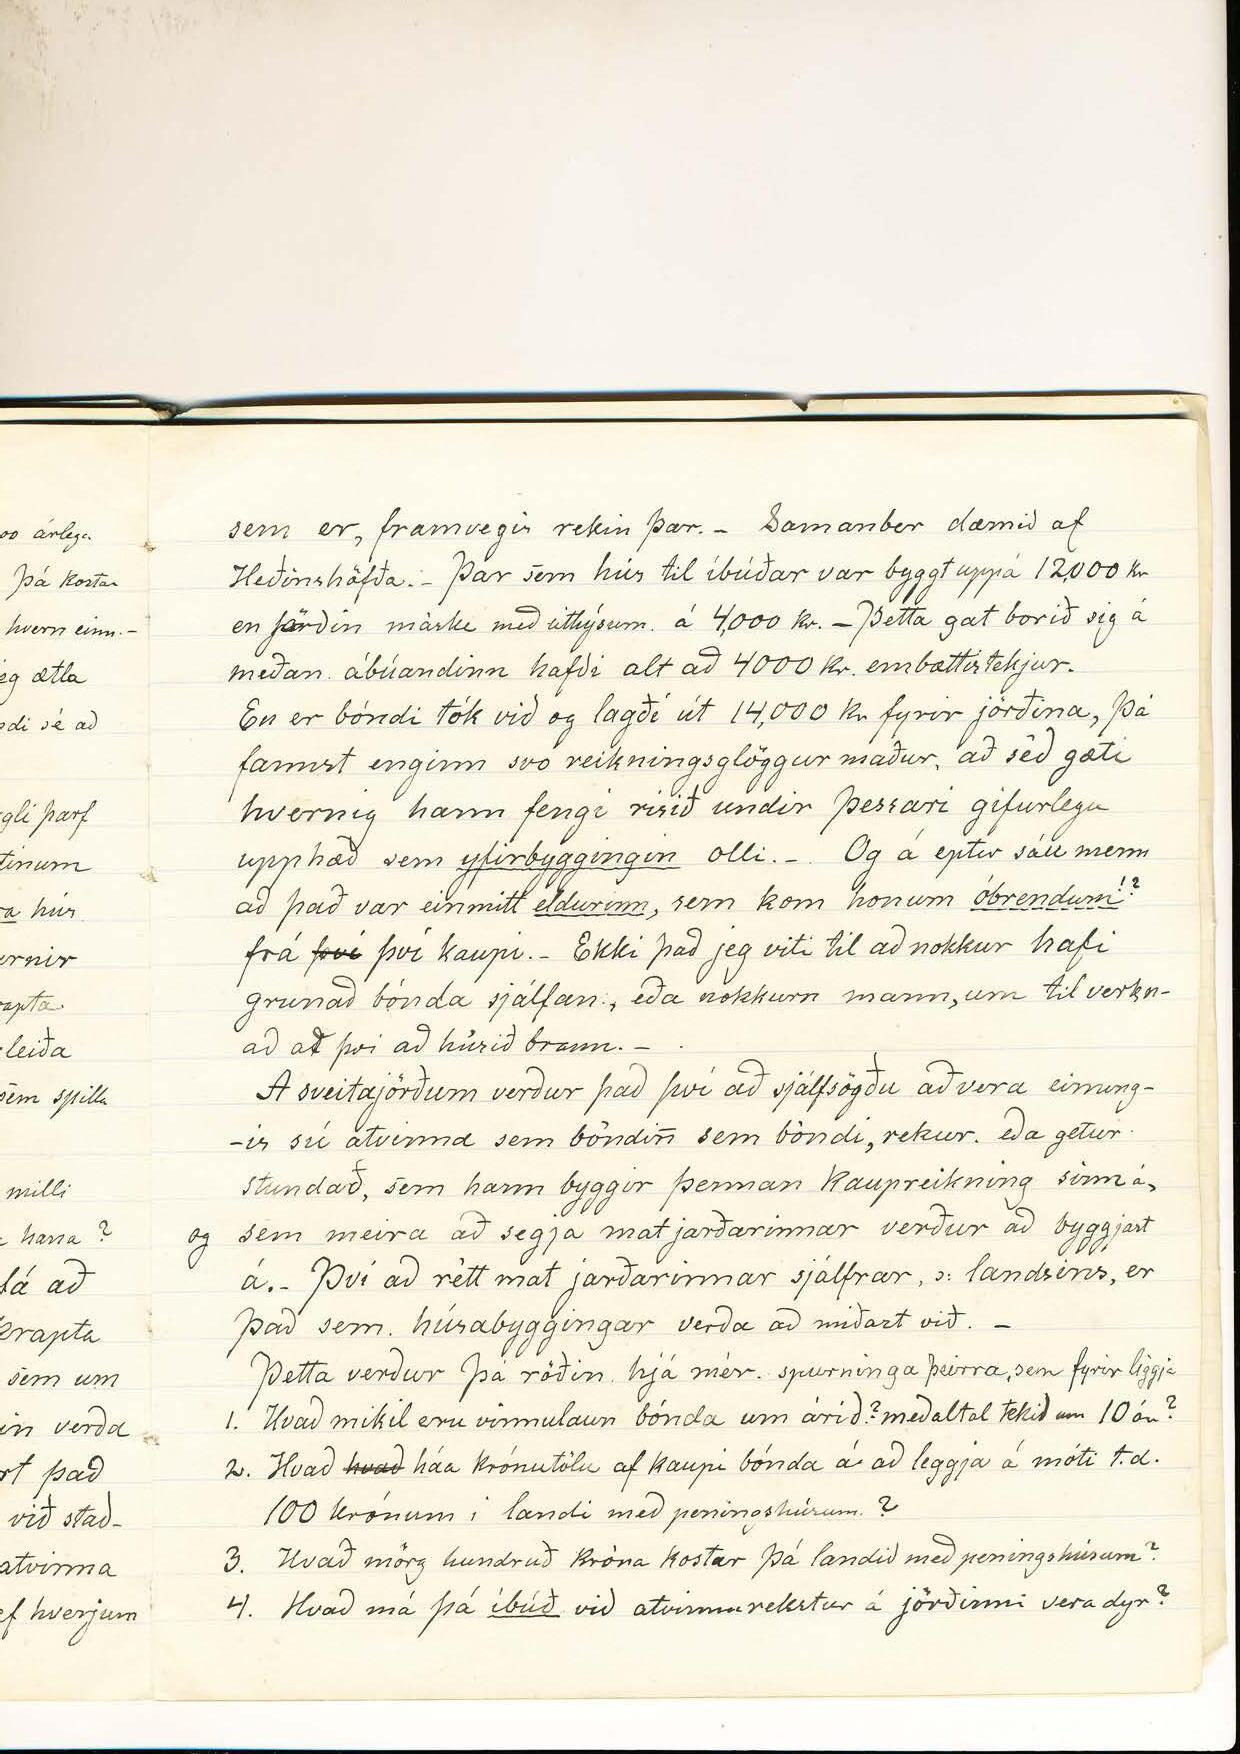 oo árlega
Þá kostar
hvern einn.-
eg ætla
ndi sé að
gli þarf
tinum
ra hús
ernir
rapta
leiða
sem spilla
milli
hana?
fá að
krapta
sem um
in verða
rt það
við stað-
atvinna
ef hverjum
sem er, framvegis rekin þar. - Samanber dæmið af
Héðinshöfða. - Þar sem hús til íbúðar var byggt uppá 12,000 kr
en jörðin máske með úthýsum á 4,000 kr. - Þetta gat borið sig á
meðan ábúandinn hafði alt að 4000 kr. embættistekjur.
En er bóndi tók við og lagði út 14,000 kr fyrir jörðina, þá
fannst enginn svo reikningsglöggur maður, að séð gæti
hvernig hann fengi risið undir þessari gífurlegu
upphæð sem yfirbyggingin olli. - Og á eptir sáu menn
að það var einmitt eldurinn, sem kom honum óbrendum!?
frá því því kaupi. - Ekki það jeg viti til að nokkur hafi
grunað bónda sjálfan, eða nokkurn mann, um til verkn-
að að því að húsið brann. -
Á sveitajörðum verður það því að sjálfsögðu að vera einung-
-is sú atvinna sem bóndiñ sem bóndi, rekur eða getur
stundað, sem hann byggir þennan kaupreikning sinn á,
og sem meira að segja mat jarðarinnar verður að byggjast
á. - Því að rétt mat jarðarinnar sjálfrar, ɔ: landsins, er
það sem húsabyggingar verða að miðast við. -
Þetta verður þá röðin hjá mér spurninga þeirra, sem fyrir liggja
1. Hvað mikil eru vinnulaun bónda um árið? meðaltal tekið um 10 ár?
2. Hvað hvað háa krónutölu af kaupi bónda á að leggja á móti t.d.
100 krónum í landi með peningshúsum?
3. Hvað mörg hundruð króna kostar þá landið með peningshúsum?
4. Hvað má þá íbúð við atvinnurekstur á jörðinni vera dýr?